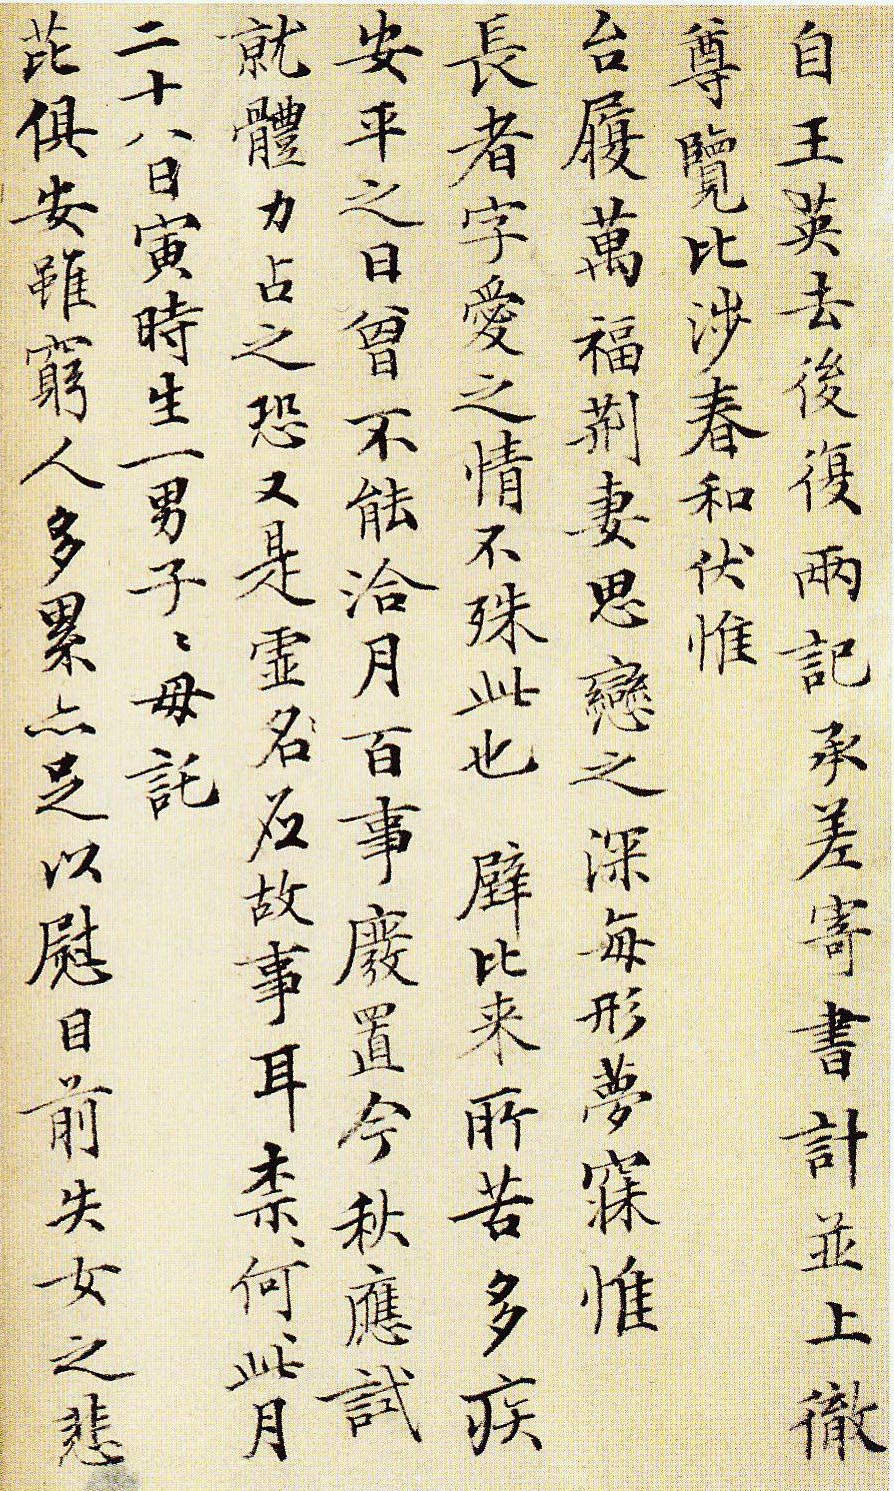 自王英去後復兩記承差寄書計並上徹
尊覽比涉春和伏惟
台履萬福荊妻思戀之深每形夢寐惟
長者字愛之情不殊此也 璧比来所苦多疾
安平之日曾不能浹月百事廢置今秋應試
就體力占之恐又是虛名應故事耳柰何柰何此月
二十八日寅時生一男子〻母託
芘俱安雖窮人多累亦足以慰目前失女之悲